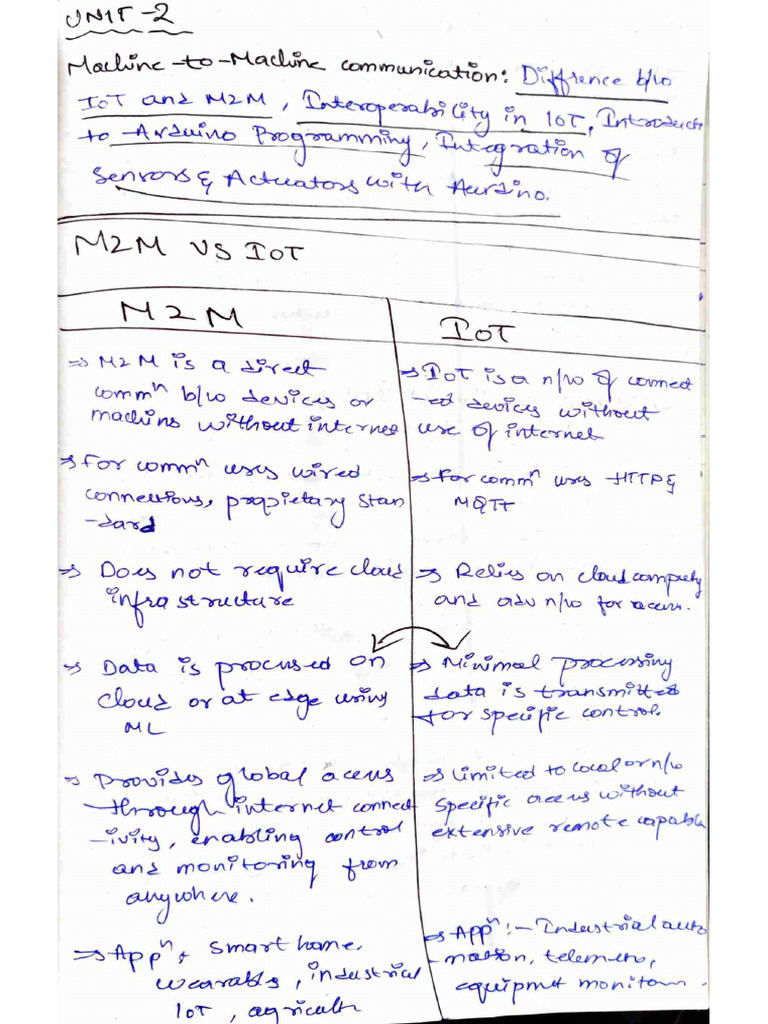 UNIT-2
Machine-to-Machine communication: Diffrence b/w
IoT and M2M, Interoperability in IoT, Introducti
to Arduino Programming, Integration of
Sensors & Actuators with Aurdino.
M2M VS IoT
M2M
IoT
⇒ M2M is a direct
commⁿ b/w devices or
machins without internet
⇒ For commⁿ uses wired
connections, propietary stan
-dard
⇒ Does not require cloud
infrastructure
⇒ Data is processed on
cloud or at edge using
ML
⇒ Provides global access
through internet connect
-ivity, enabling control
and monitoring from
anywhere.
⇒ Appⁿ: Smart home,
wearables, industrial
IoT, agricult
⇒ IoT is a n/w of connect
-ed devices without
use of internet
⇒ For commⁿ uses HTTP &
MQTT
⇒ Relies on cloud
and adv n/w for access.
⇒ Minimal processing
data is transmitted
for specific control.
⇒ Limited to local or n/w
specific access without
extensive remote capable
⇒ Appⁿ :- Industrial auto
-mation,
equipment